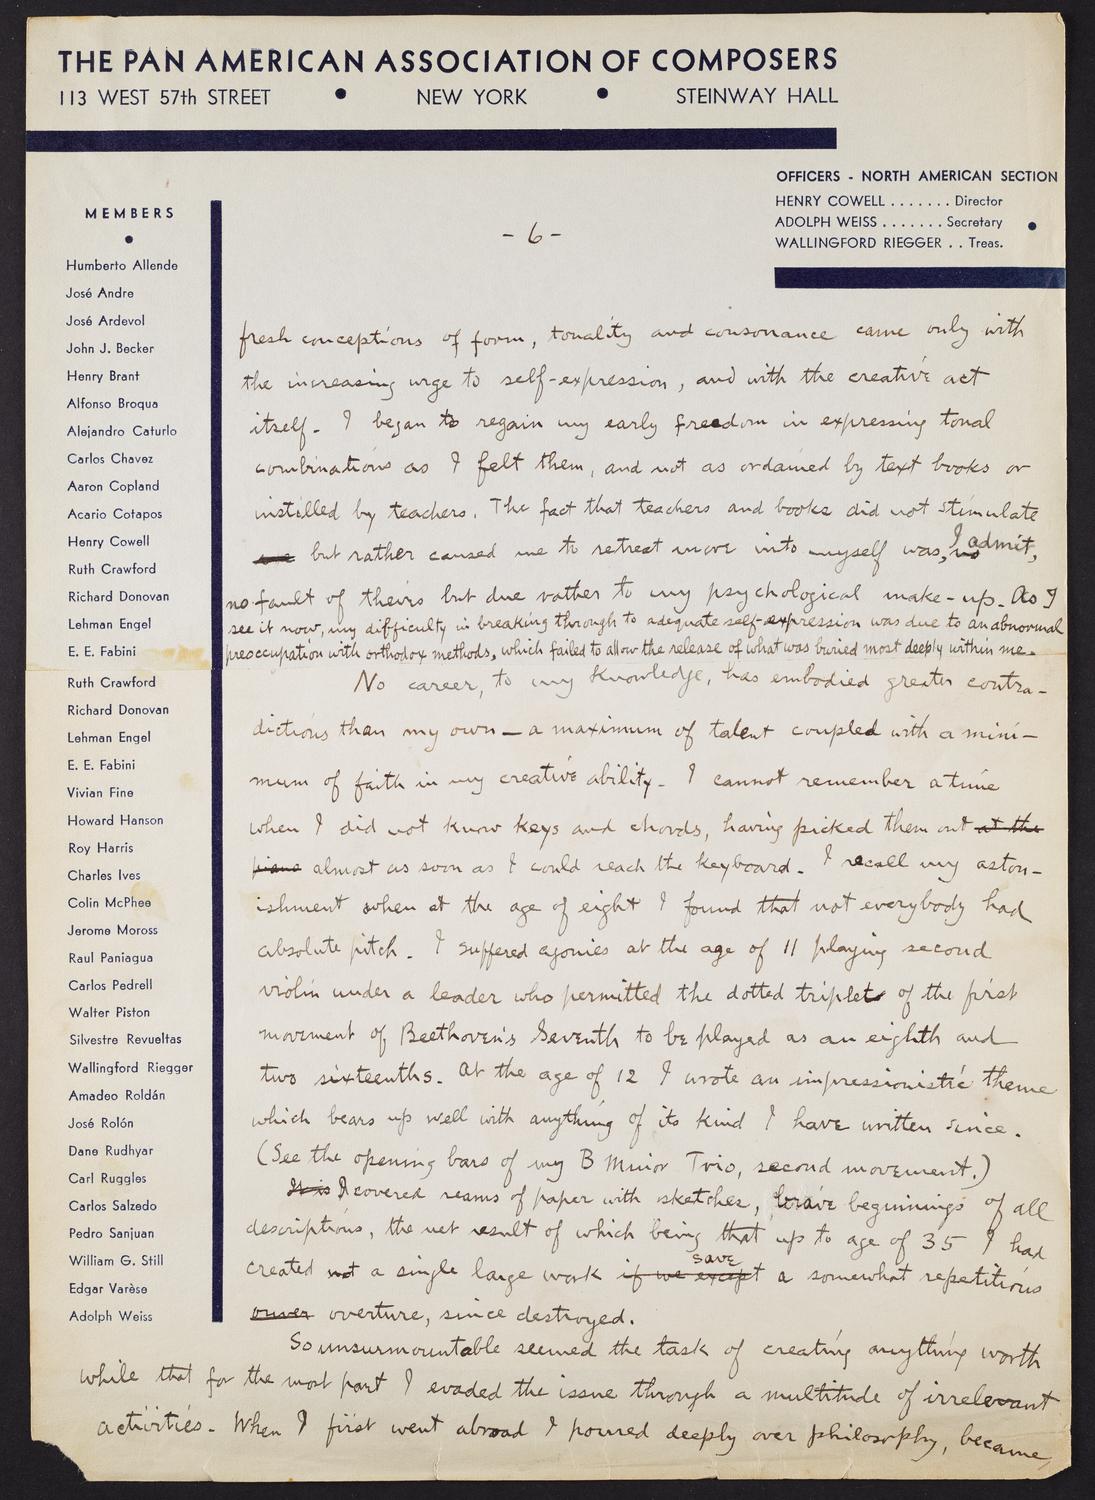 THE PAN AMERICAN ASSOCIATION OF COMPOSERS
113 WEST 57th STREET • NEW YORK • STEINWAY HALL
OFFICERS - NORTH AMERICAN SECTION
HENRY COWELL . . . . . . . Director
ADOLPH WEISS . . . . . . . Secretary •
WALLINGFORD RIEGGER . . Treas.
MEMBERS
•
Humberto Allende
José Andre
José Ardevol
John J. Becker
Henry Brant
Alfonso Broqua
Alejandro Caturlo
Carlos Chavez
Aaron Copland
Acario Cotapos
Henry Cowell
Ruth Crawford
Richard Donovan
Lehman Engel
E. E. Fabini
Ruth Crawford
Richard Donovan
Lehman Engel
E. E. Fabini
Vivian Fine
Howard Hanson
Roy Harris
Charles Ives
Colin McPhee
Jerome Moross
Raul Paniagua
Carlos Pedrell
Walter Piston
Silvestre Revueltas
Wallingford Riegger
Amadeo Roldán
José Rolón
Dane Rudhyar
Carl Ruggles
Carlos Salzedo
Pedro Sanjuan
William G. Still
Edgar Varèse
Adolph Weiss
- 6 -
fresh conceptions of form, tonality and consonance came only with
the increasing urge to self-expression, and with the creative act
itself. I began to regain my early freedom in expressing tonal
combinations as I felt them, and not as ordained by text books or
instilled by teachers. The fact that teachers and books did not stimulate
me but rather caused me to retreat more into myself was, I admit, no
no fault of theirs but due rather to my psychological make-up. As I
see it now, my difficulty in breaking through to adequate self-expression was due to an abnormal
preoccupation with orthodox methods, which failed to allow the release of what was buried most deeply within me.
No career, to my knowledge, has embodied greater contra-
dictions than my own — a maximum of talent coupled with a mini-
mum of faith in my creative ability. I cannot remember a time
when I did not know keys and chords, having picked them out at the
piano almost as soon as I could reach the keyboard. I recall my aston-
ishment when at the age of eight I found that not everybody had
absolute pitch. I suffered agonies at the age of 11 playing second
violin under a leader who permitted the dotted triplets of the first
movement of Beethoven's Seventh to be played as an eighth and
two sixteenths. At the age of 12 I wrote an impressionistic theme
which bears up well with anything of its kind I have written since.
(See the opening bars of my B Minor Trio, second movement.)
It is I covered reams of paper with sketches, brave beginnings of all
descriptions, the net result of which being that up to age of 35 I had
created not a single large work if we except save a somewhat repetitious
overture, since destroyed.
So unsurmountable seemed the task of creating anything worth
while that for the most part I evaded the issue through a multitude of irrelevant
activities. When I first went abroad I poured deeply over philosophy, became